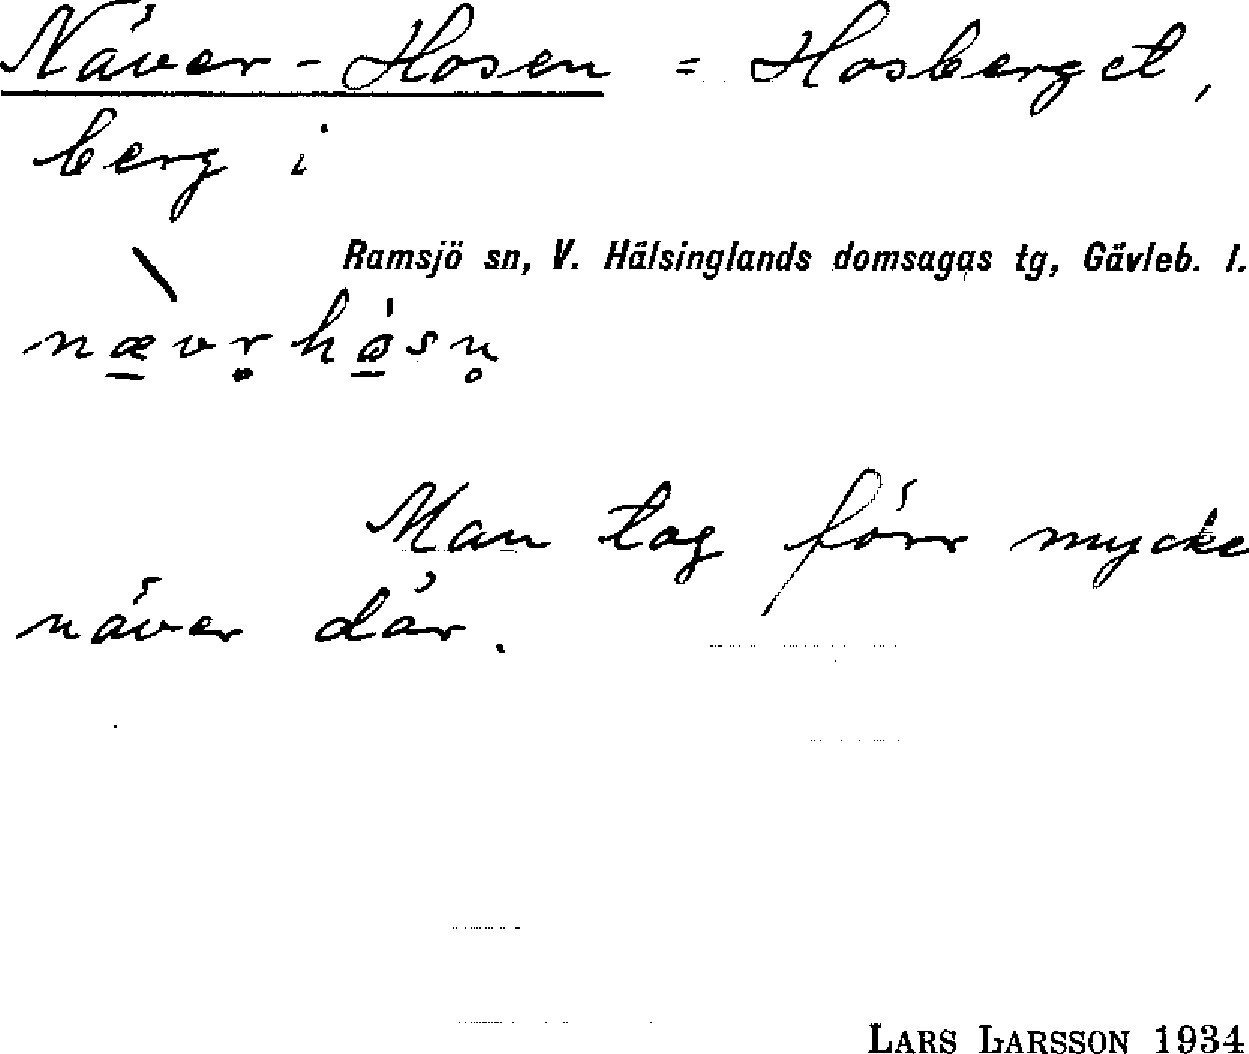 Näver-Hosen = Hosberget,
berg i
Ramsjö sn, V. Hälsinglands domsagas tg, Gävleb. l.
nævr̥hósn̥
Man tog förr mycke
näver där.
LARS LARSSON 1934